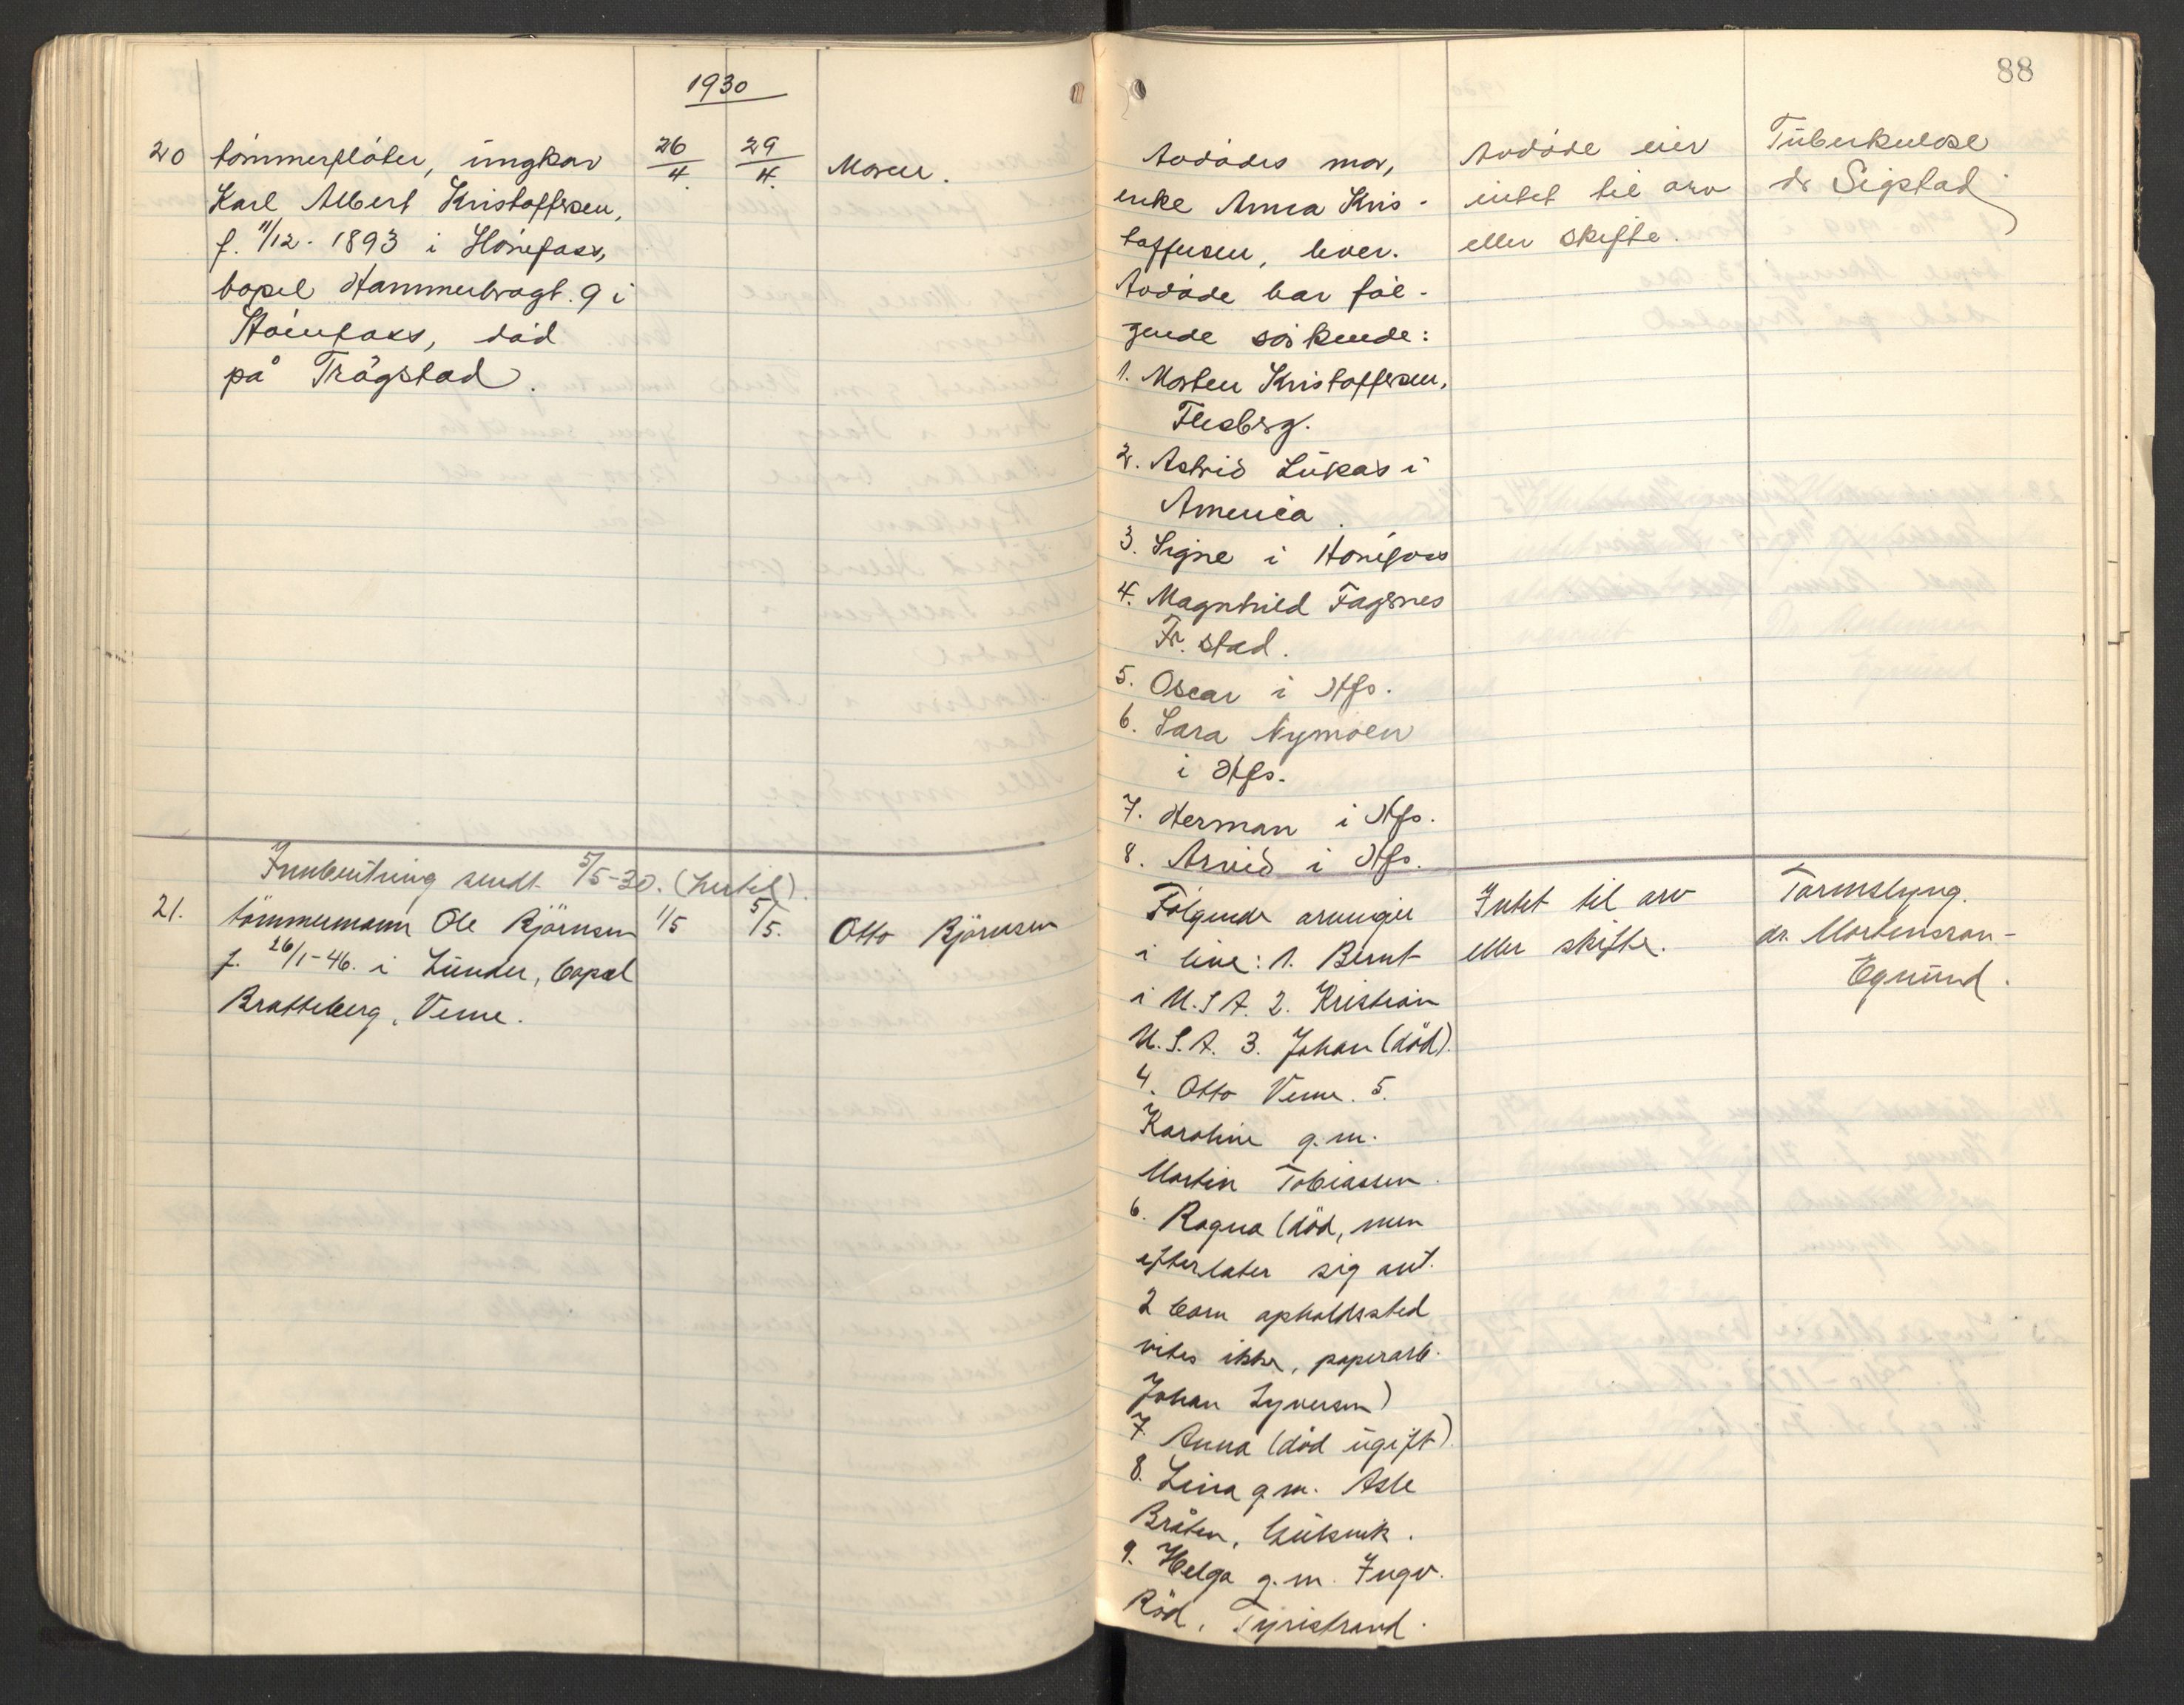 1930
88
20 tömmerfløter, ungkar
Karl Albert Kristoffersen,
f. 11/12 - 1893 i Hönefoss,
bopel Hammerbrogt. 9 i
Hönefoss, död
på Trögstad.
26/4
29/4
Moren.
Avdødes mor,
enke Anna Kris-
toffersen, lever.
Avdöde har föl-
gende söskende:
1. Morten Kristoffersen,
Flesberg.
2. Astrid Lukas i
America.
3. Signe i Hönefoss
4. Magnhild Fagernes
Fr. stad.
5. Oscar i Hfs.
6. Sara Nymoen
i Hfs.
7. Herman i Hfs.
8. Arvid i Hfs.
Avdöde eier
intet til arv
eller skifte.
Tuberkulose
dr Sigstad
Innberetning sendt 5/5-30. (intet).
21. tömmermann Ole Björnsen
f. 26/1-46. i Lunder, bopel
Bratteberg, Veme.
1/5
5/5.
Otto Björnsen
Følgende arvinger
i live: 1. Bernt
i U.S.A. 2. Kristian
U.S.A. 3. Johan (död).
4. Otto Veme. 5.
Karoline g.m.
Martin Tobiassen.
6. Ragna (död, men
efterlater sig ant.
2 barn opholdssted
vites ikke, paperarb.
Johan Syversen)
7. Anna (död ugift).
8. Lina g.m. Asle
Bråten,
9. Helga g.m. Ingv.
Röd, Tyristrand.
Intet til arv
eller skifte.
Tarmslyng.
dr. Mortensson-
Egnund.